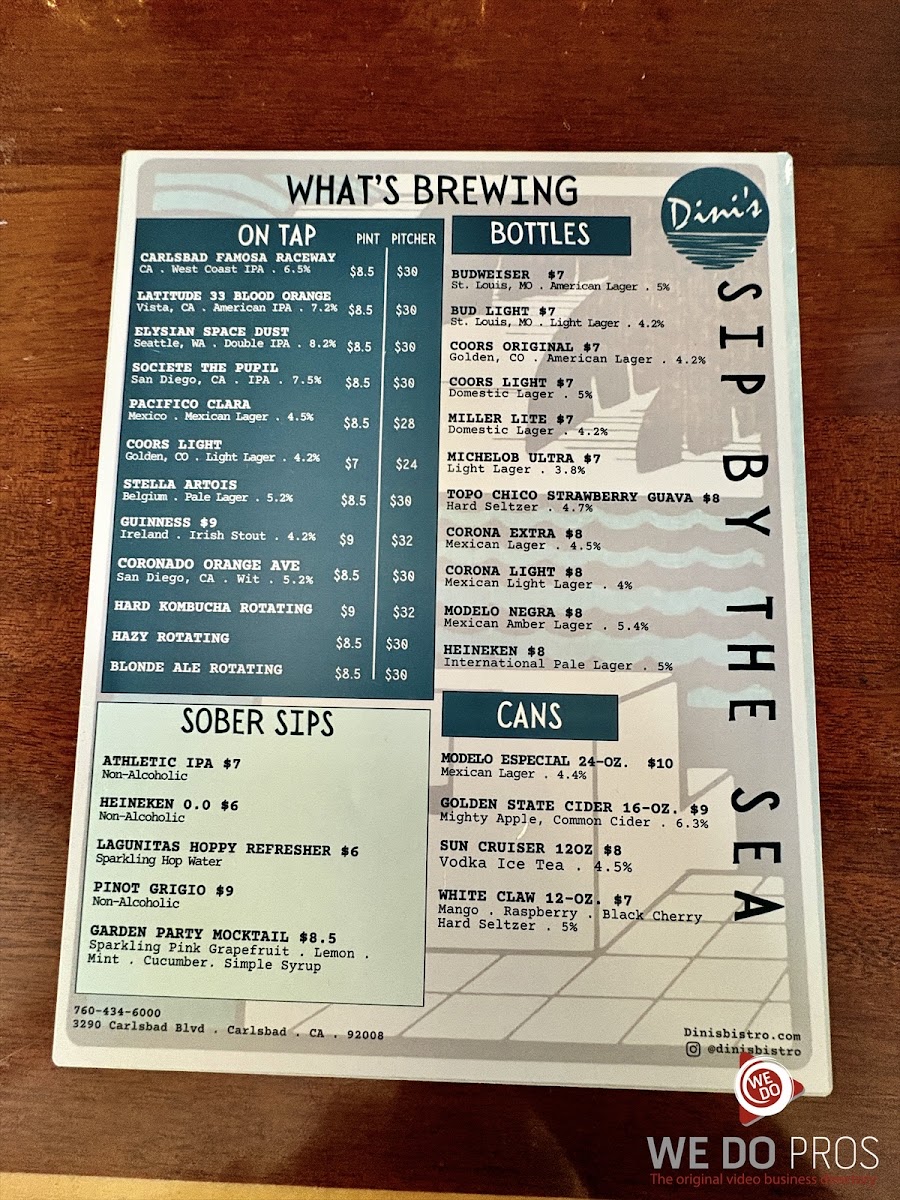 WHAT'S BREWING
Dini's
SIP BY THE SEA
ON TAP PINT PITCHER
CARLSBAD FAMOSA RACEWAY
CA . West Coast IPA . 6.5% $8.5 $30
LATITUDE 33 BLOOD ORANGE
Vista, CA . American IPA . 7.2% $8.5 $30
ELYSIAN SPACE DUST
Seattle, WA . Double IPA . 8.2% $8.5 $30
SOCIETE THE PUPIL
San Diego, CA . IPA . 7.5% $8.5 $30
PACIFICO CLARA
Mexico . Mexican Lager . 4.5% $8.5 $28
COORS LIGHT
Golden, CO . Light Lager . 4.2% $7 $24
STELLA ARTOIS
Belgium . Pale Lager . 5.2% $8.5 $30
GUINNESS $9
Ireland . Irish Stout . 4.2% $9 $32
CORONADO ORANGE AVE
San Diego, CA . Wit . 5.2% $8.5 $30
HARD KOMBUCHA ROTATING $9 $32
HAZY ROTATING $8.5 $30
BLONDE ALE ROTATING $8.5 $30
BOTTLES
BUDWEISER $7
St. Louis, MO . American Lager . 5%
BUD LIGHT $7
St. Louis, MO . Light Lager . 4.2%
COORS ORIGINAL $7
Golden, CO . American Lager . 4.2%
COORS LIGHT $7
Domestic Lager . 5%
MILLER LITE $7
Domestic Lager . 4.2%
MICHELOB ULTRA $7
Light Lager . 3.8%
TOPO CHICO STRAWBERRY GUAVA $8
Hard Seltzer . 4.7%
CORONA EXTRA $8
Mexican Lager . 4.5%
CORONA LIGHT $8
Mexican Light Lager . 4%
MODELO NEGRA $8
Mexican Amber Lager . 5.4%
HEINEKEN $8
International Pale Lager . 5%
SOBER SIPS
ATHLETIC IPA $7
Non-Alcoholic
HEINEKEN 0.0 $6
Non-Alcoholic
LAGUNITAS HOPPY REFRESHER $6
Sparkling Hop Water
PINOT GRIGIO $9
Non-Alcoholic
GARDEN PARTY MOCKTAIL $8.5
Sparkling Pink Grapefruit . Lemon .
Mint . Cucumber. Simple Syrup
CANS
MODELO ESPECIAL 24-OZ. $10
Mexican Lager . 4.4%
GOLDEN STATE CIDER 16-OZ. $9
Mighty Apple, Common Cider . 6.3%
SUN CRUISER 12OZ $8
Vodka Ice Tea . 4.5%
WHITE CLAW 12-OZ. $7
Mango . Raspberry . Black Cherry
Hard Seltzer . 5%
760-434-6000
3290 Carlsbad Blvd . Carlsbad . CA . 92008
Dinisbistro.com
@dinisbistro
WE DO
WE DO PROS
The original video business directory